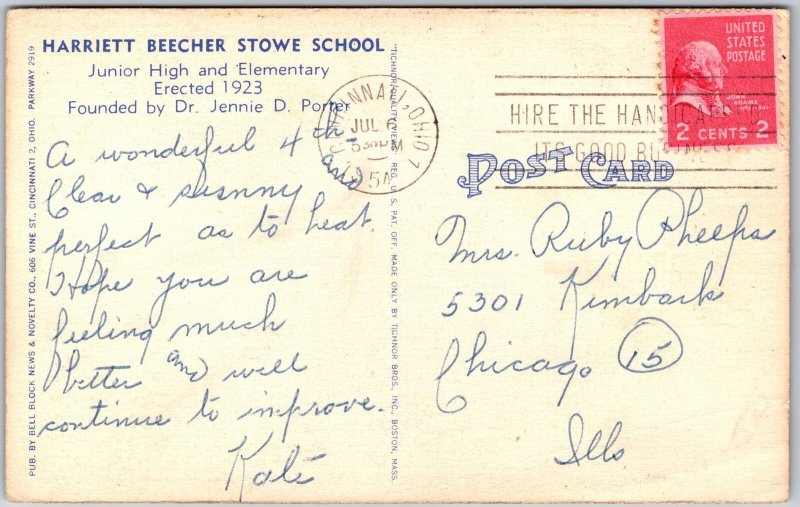 HARRIETT BEECHER STOWE SCHOOL
Junior High and Elementary
Erected 1923
Founded by Dr. Jennie D. Porter
A wonderful 4th and
Clear & sunny
perfect as to heat.
Hope you are
feeling much
better and will
continue to improve.
Kate
PUB. BY BELL BLOCK NEWS & NOVELTY CO., 606 VINE ST., CINCINNATI 2, OHIO. PARKWAY 2919
"TICHNOR QUALITY VIEWS" REG. U. S. PAT. OFF. MADE ONLY BY TICHNOR BROS., INC., BOSTON, MASS.
CINCINNATI, OHIO 1
JUL 6
5 30 PM
54
HIRE THE HANDICAPPED
ITS GOOD BUSINESS
UNITED
STATES
POSTAGE
JOHN
ADAMS
2 CENTS 2
POST CARD
Mrs. Ruby Phelps
5301 Kimbark
Chicago 15
Ills